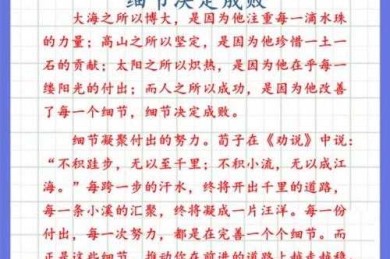 细节决定成败
大海之所以博大，是因为他注重每一滴水珠
的力量；高山之所以坚定，是因为他珍惜一土一
石的贡献；太阳之所以炽热，是因为他在乎每一
缕阳光的付出；而人之所以成功，是因为他改善
了每一个细节，细节决定成败。
细节凝聚付出的努力。荀子在《劝说》中说：
“不积跬步，无以至千里；不积小流，无以成江
海。”每跨一步的汗水，终将开出千里的道路，
每一条小溪的汇聚，终将凝成一片汪洋。每一份
付出，每一次努力，都是在完善一个个细节。而
正是这些细节，推动你在前进的道路上越走越稳